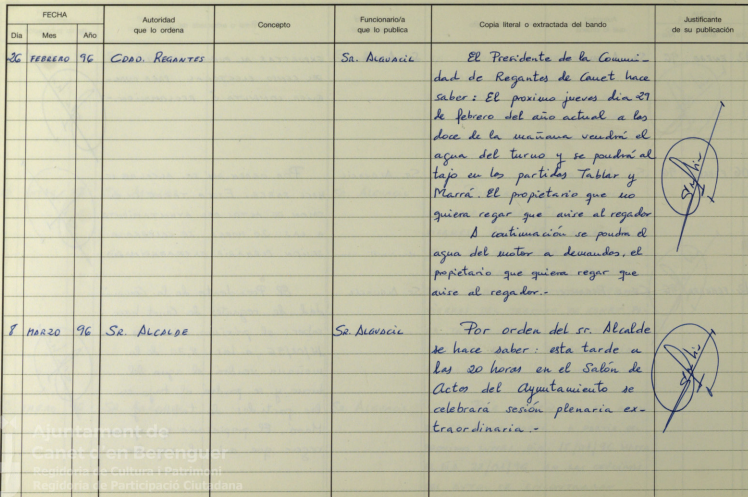 FECHA
Día Mes Año
Autoridad
que lo ordena
Concepto
Funcionario/a
que lo publica
Copia literal o extractada del bando
Justificante
de su publicación
26 FEBRERO 96 CDAD. REGANTES SR. ALGUACIL El Presidente de la Comuni-
dad de Regantes de Canet hace
saber: El proximo jueves dia 29
de febrero del año actual a las
doce de la mañana vendrá el
agua del turno y se pondrá al
tajo en las partidas Tablar y
Marrá. El propietario que no
quiera regar que avise al regador
A continuación se pondra el
agua del motor a demandas, el
propietario que quiera regar que
avise al regador.-
8 MARZO 96 SR. ALCALDE SR. ALGUACIL Por orden del sr. Alcalde
se hace saber: esta tarde a
las 20 horas en el Salón de
Actos del Ayuntamiento se
celebrará sesión plenaria ex-
traordinaria.-
Ajuntament de
Canet d'en Berenguer
Regidoria de Cultura i Patrimoni
Regidoria de Participació Ciutadana